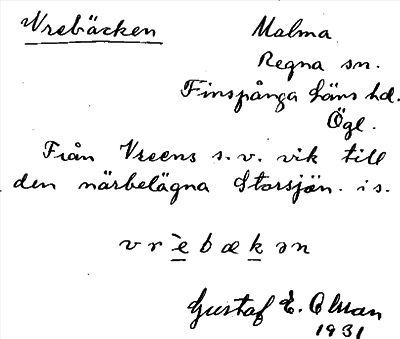 Vrebäcken
Malma
Regna sn.
Finspånga läns hd.
Ögl.
Från Vreens s.v. vik till
den närbelägna Storsjön. i s.
vrèbækən
Gustaf E. Olsson
1931